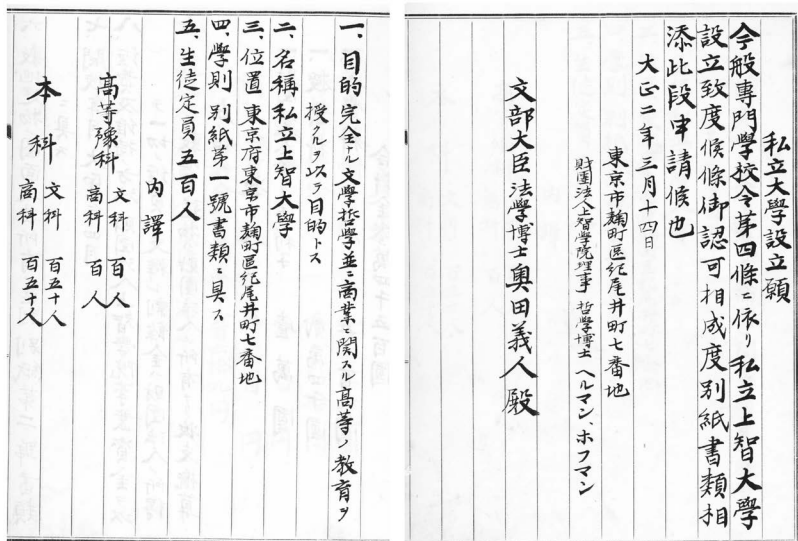 私立大學設立願
今般專門學校令第四條ニ依リ私立上智大學
設立致度候條御認可相成度別紙書類相
添此段申請候也
大正二年三月十四日
東京市麹町區紀尾井町七番地
財團法人上智學院理事 哲學博士 ヘルマン、ホフマン
文部大臣法學博士奥田義人殿
一、目的 完全ナル文學哲學並ニ商業ニ関スル高等ノ教育ヲ
授クルヲ以テ目的トス
二、名稱 私立上智大學
三、位置 東京府東京市麹町區紀尾井町七番地
四、學則 別紙第一號書類ニ具ス
五、生徒定員 五百人
内譯
高等豫科 文科 百人
商科 百人
本科 文科 百五十人
商科 百五十人